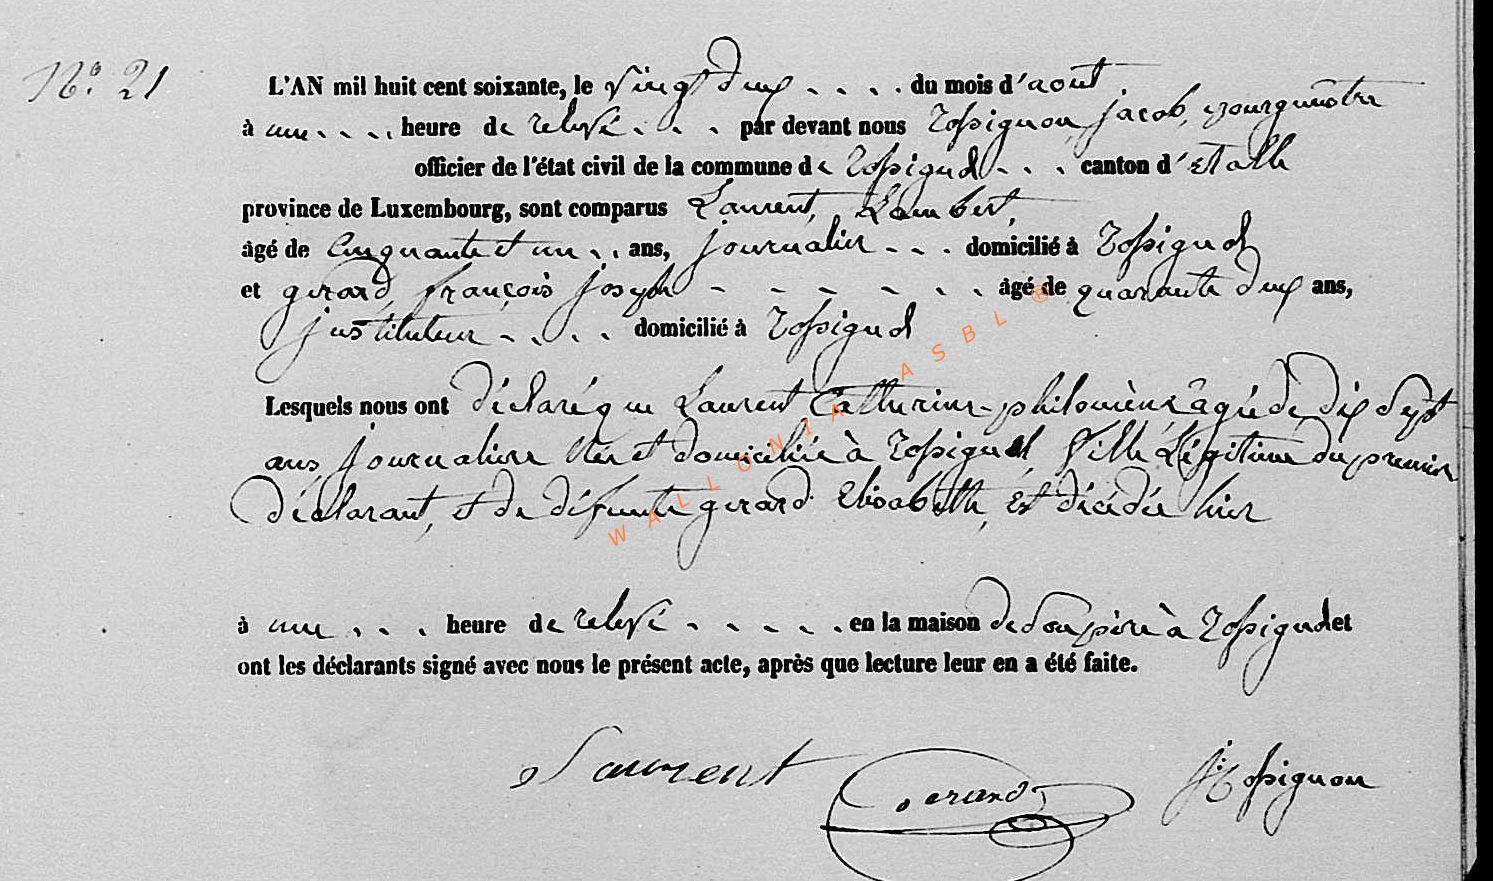 N° 21
L'AN mil huit cent soixante, le vingt deux . . . . du mois d'aout
à une . . . . heure de relevé . . . par devant nous Rossignon, jacob, Bourgumestre
officier de l'état civil de la commune de Rossignol . . . canton d'Etalle
province de Luxembourg, sont comparus Laurent, Lambert,
âgé de Cinquante et un . . ans, journalier . . . domicilié à Rossignol
et gerard, françois joseph - - - - - - - âgé de quarante deux ans,
justituteur . . . . domicilié à Rossignol
Lesquels nous ont déclaré que Laurent Catherine-philomène âgée de dix sept
ans journalière Née et domiciliée à Rossignol fille Légitime du premier
Déclarant, et de défunte gerard Elisabeth, est décédée hier
à une . . . heure de relevé . . . . . en la maison de Son père à Rossignol et
ont les déclarants signé avec nous le présent acte, après que lecture leur en a été faite.
Laurent Gerard J Rossignon
WALLONIA ASBL ®